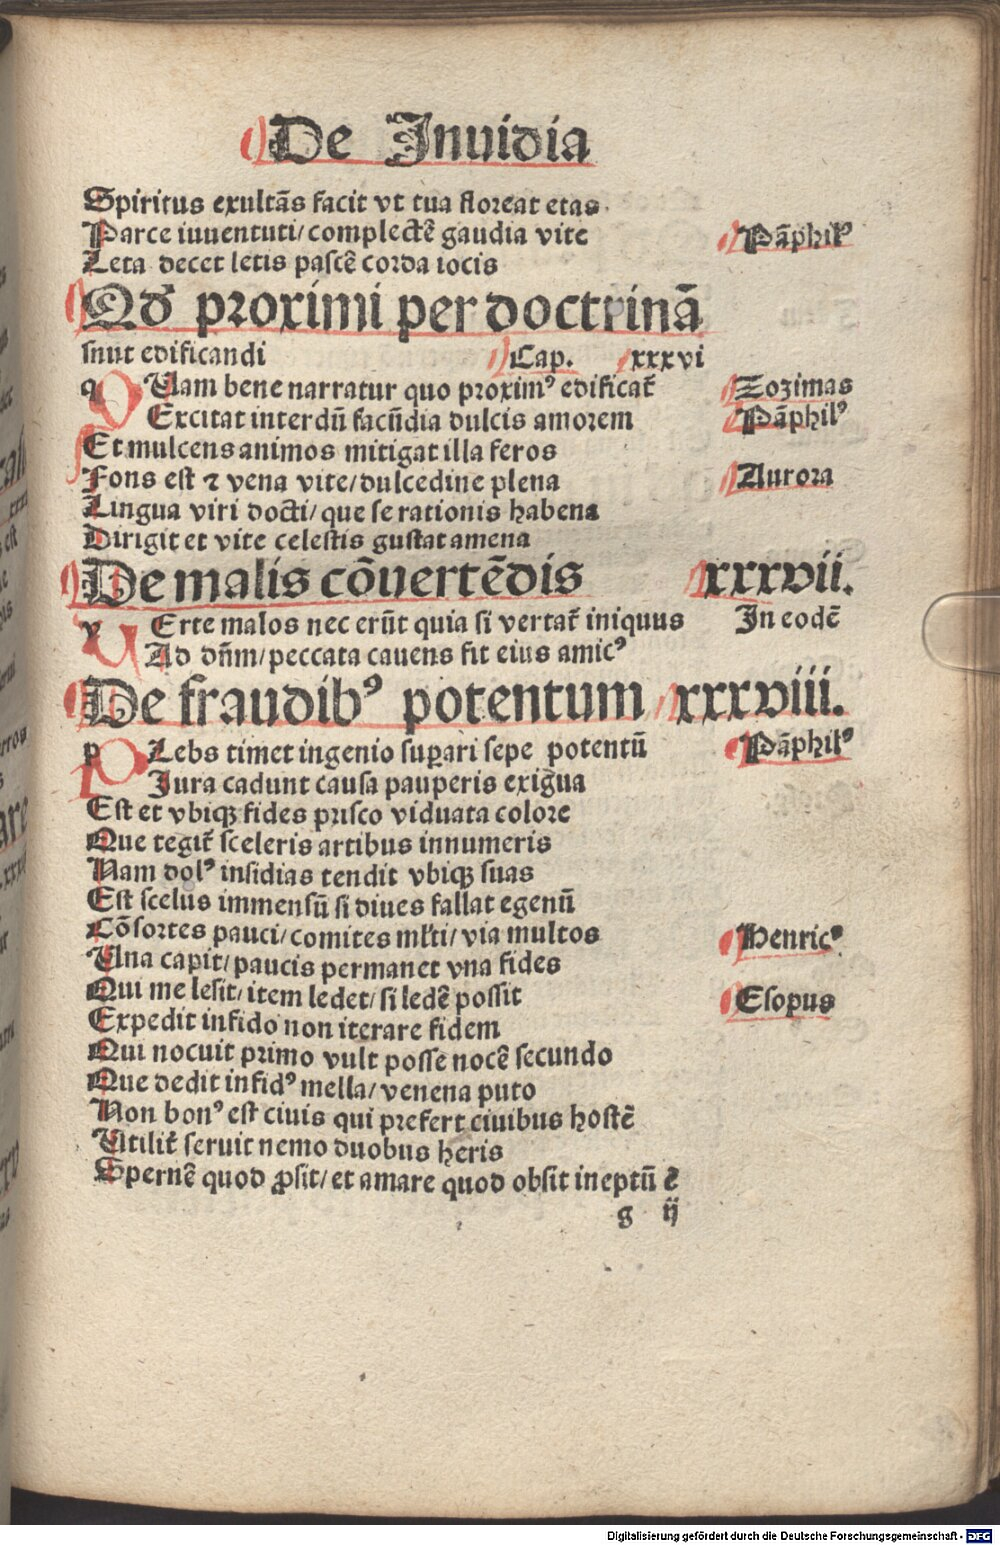 De Inuidia
Spiritus exultās facit vt tua floreat etas.
Parce iuuentuti/ complectē gaudia vite Pāphilꝰ
Leta decet letis pascē corda iocis
Qđ proximi per doctrinā
snut edificandi Cap. xxxvi
q Uam bene narratur quo proximꝰ edificat̄ Zozimas
Excitat interdū facūdia dulcis amorem Pāphilꝰ
Et mulcens animos mitigat illa feros
Fons est ⁊ vena vite/ dulcedine plena Aurora
Lingua viri docti/ que se rationis habena
Dirigit et vite celestis gustat amena
De malis cōuertēdis xxxvii.
v Erte malos nec erūt quia si vertat̄ iniquus In eodē
Ad dn̄m/ peccata cauens fit eius amicꝰ
De fraudibꝰ potentum xxxviii.
p Lebs timet ingenio suꝑari sepe potentū Pāphilꝰ
Jura cadunt causa pauperis exigua
Est et vbiqꝫ fides prisco viduata colore
Que tegit̄ sceleris artibus innumeris
Nam dolꝰ insidias tendit vbiqꝫ suas
Est scelus immensū si diues fallat egenū
Cōsortes pauci/ comites ml̄ti/ via multos Henricꝰ
Una capit/ paucis permanet vna fides
Qui me lesit/ item ledet/ si ledē possit Esopus
Expedit infido non iterare fidem
Qui nocuit primo vult posse nocē secundo
Que dedit infidꝰ mella/ venena puto
Non bonꝰ est ciuis qui prefert ciuibus hostē
Utilit̄ seruit nemo duobus heris
Spernē quod ꝓsit/ et amare quod obsit ineptū ē
g ij
Digitalisierung gefördert durch die Deutsche Forschungsgemeinschaft - DFG